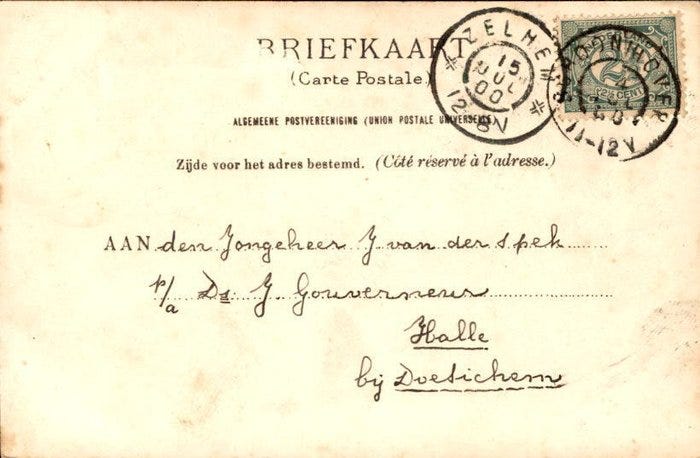 BRIEFKAART
(Carte Postale)
ALGEMEENE POSTVEREENIGING (UNION POSTALE UNIVERSELLE)
Zijde voor het adres bestemd. (Côté réservé à l'adresse.)
ZELHEM
15 JUL 00
12-8V
SCHOONHOVEN
11-12V
2½ CENT
AAN den Jongeheer J. van der spek
p/a Ds J. Gouverneur
Halle
bij Doetichem